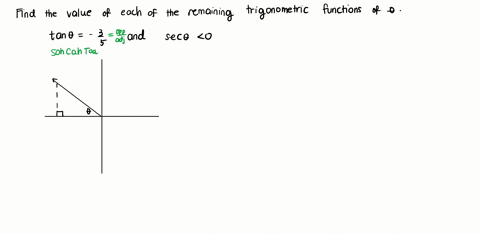 Find the value of each of the remaining trigonometric functions of θ.
tanθ = - 3/5 = opp/adj and secθ <0
Soh Cah Toa
θ